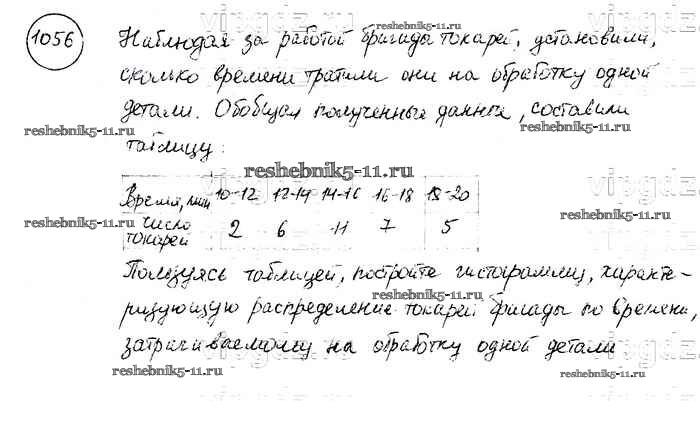 1056 Наблюдая за работой бригады токарей, установили,
сколько времени тратили они на обработку одной
детали. Обобщая полученные данные, составили
таблицу:
Время, мин 10-12 12-14 14-16 16-18 18-20
Число токарей 2 6 11 7 5
Пользуясь таблицей, постройте гистограмму, характе-
ризующую распределение токарей бригады по времени,
затрачиваемому на обработку одной детали
reshebnik5-11.ru
reshebnik5-11.ru
reshebnik5-11.ru
reshebnik5-11.ru
reshebnik5-11.ru
reshebnik5-11.ru
reshebnik5-11.ru
reshebnik5-11.ru